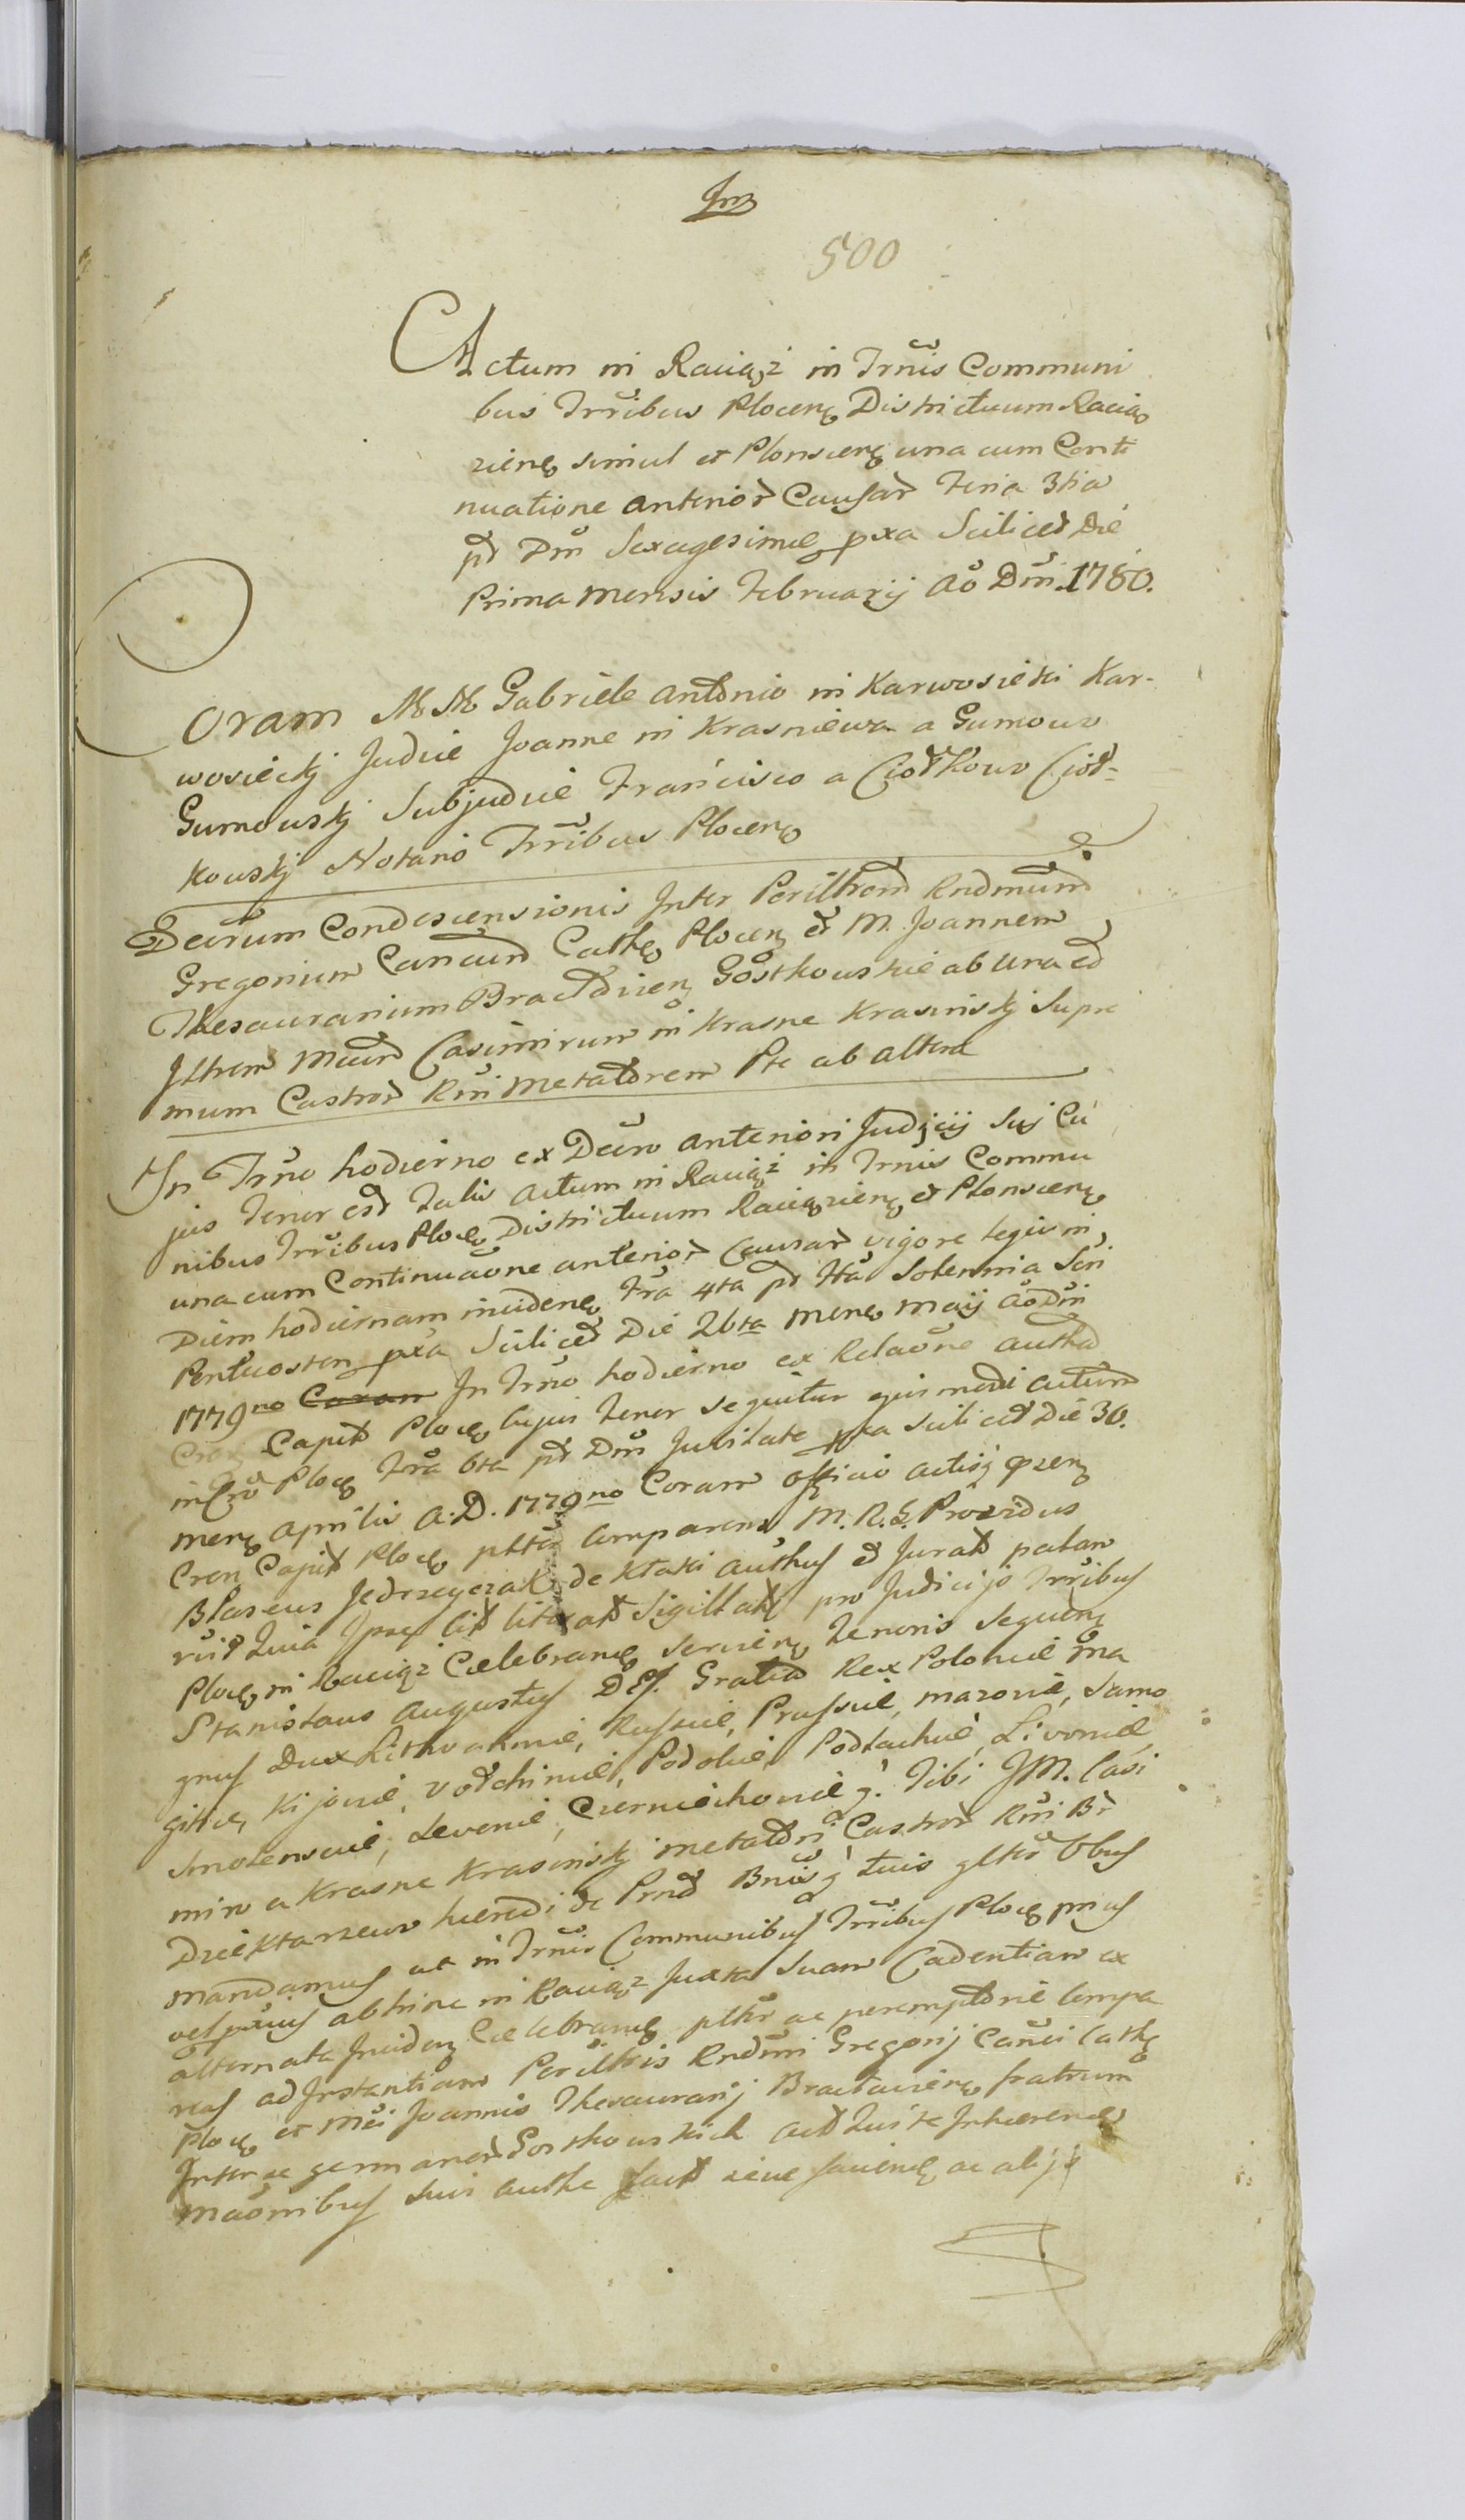 500
Actum in Raciąż in Trnis Communi
bus Trribus Plocen Districtuum Racią
zien simul et Plonscen una cum Conti
nuatione anterior Causar Feria 3tia
pt Dm Sexagesimæ pxa Scilicet Die
Prima mensis Februarij Ao Dni 1780.
Coram MM Gabriele Antonio in Karwosieki Kar-
wosieckj Judice Joanne in Krasniewa a Gumowo
Gumowskj Subjudice Francisco a Ciołkowo Cioł-
kowskj Notario Trribus Plocen
Decrum Condescensionis Inter Perilltrem Rndmum
Gregorium Cancum Cathe Plocen et M. Joannem
Thesaurarium Bractavien Gostkowskie ab una et
Illtrem Mcum Casimirum in Krasne Krasinskj Supre
mum Castror Rni Metatorem Pte ab altera
In Trno hodierno ex Decro anteriori Judicij Sui Cu
jus Tenor est Talis Actum in Raciąż in Trnis Commu
nibus Trribus Ploce Districtuum Raciązien et Plonscen
una cum Continuaone anterior Causar vigore legis in
Diem hodiernam inciden Fra 4ta pt Fta Solennia Scri
Pentecosten pxa Scilicet Die 26ta Mens Maij Ao Dni
1779no Coram In Trno hodierno ex Relaone authca
Cren Capit Ploce cujus Tenor sequitur ejusmodi Actum
in Cro Ploce Fra 6ta pt Dm Jubilate pxa Scilicet Die 30.
mens Aprilis A.D. 1779no Coram Officio Actisq przen
Cren Capit Ploce pltr Comparens M. R. G. Providus
Blaseus Jedrzeyczak de Ktaki authus et Jurat palam
Quia Ipse lit Sigillat pro Judicijs Trribus
Ploce in Raciąż Celebrand Servien Tenoris Sequen
Stanislaus Augustus DEI Gratia Rex Poloniæ Ma
gnus Dux Lithvaniæ, Russiæ, Prussiæ, Mazoviæ, Samo
gitiæ, Kijoviæ, Vołchiniæ, Podoliæ, Podlachiæ, Livoniæ,
Smolensciæ, Seveniæ, Czerniechoviæq. Tibi JM. Casi
miro a Krasne Krasinskj Metatori Castror Rni Br
Dziektarzewo hæredi de Prna Bnisq tuis gltr Obus
Mandamus ut in Trnis Communibus Trribus Ploce prius
vel pxius abhinc in Raciąż Juxta Suam Cadentiam ex
alternata Inciden Celebrand pltr ac peremptorie Compa
reas ad Instantiam Perilltris Rndmi Gregorij Canci Cathe
Ploce et Mci Joannis Thesaurarij Bractavien fratrum
Inter se germanor Gostkowskich